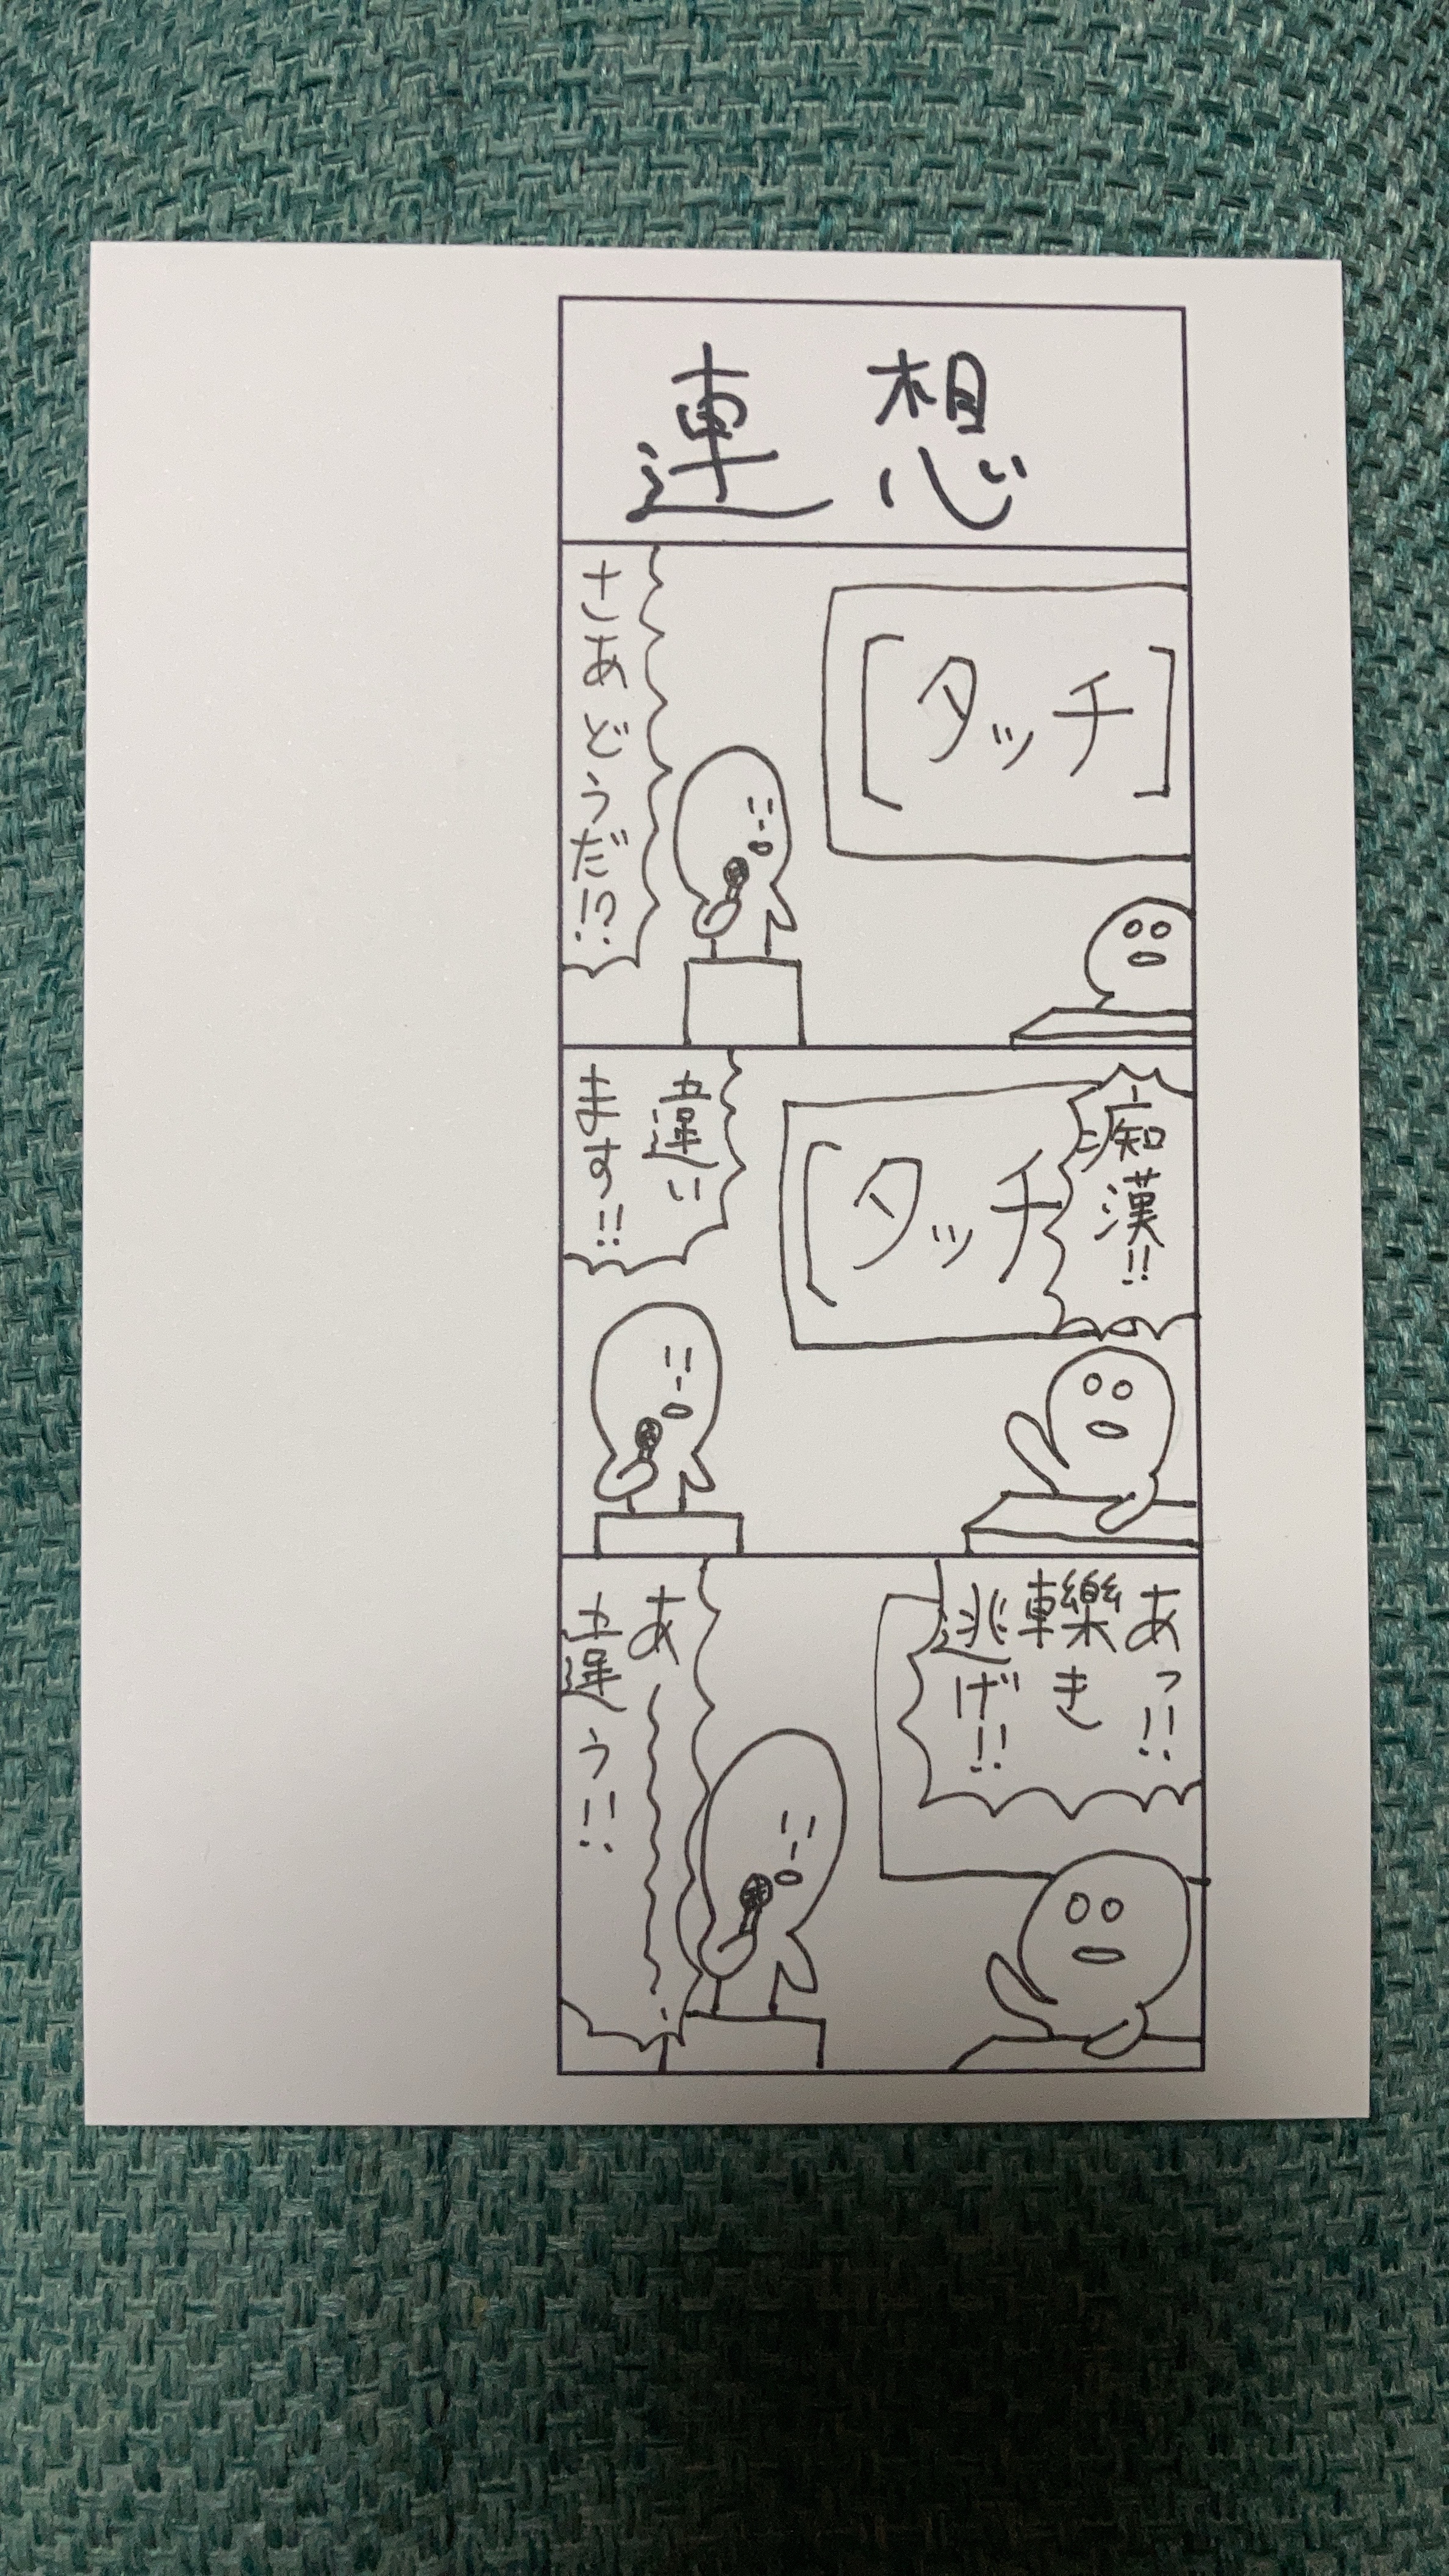 連想
[タッチ]
さあどうだ!?
痴漢!!
[タッチ
違い
ます!!
あっ!!
轢き
逃げ!!
あ〜〜〜
違う!!